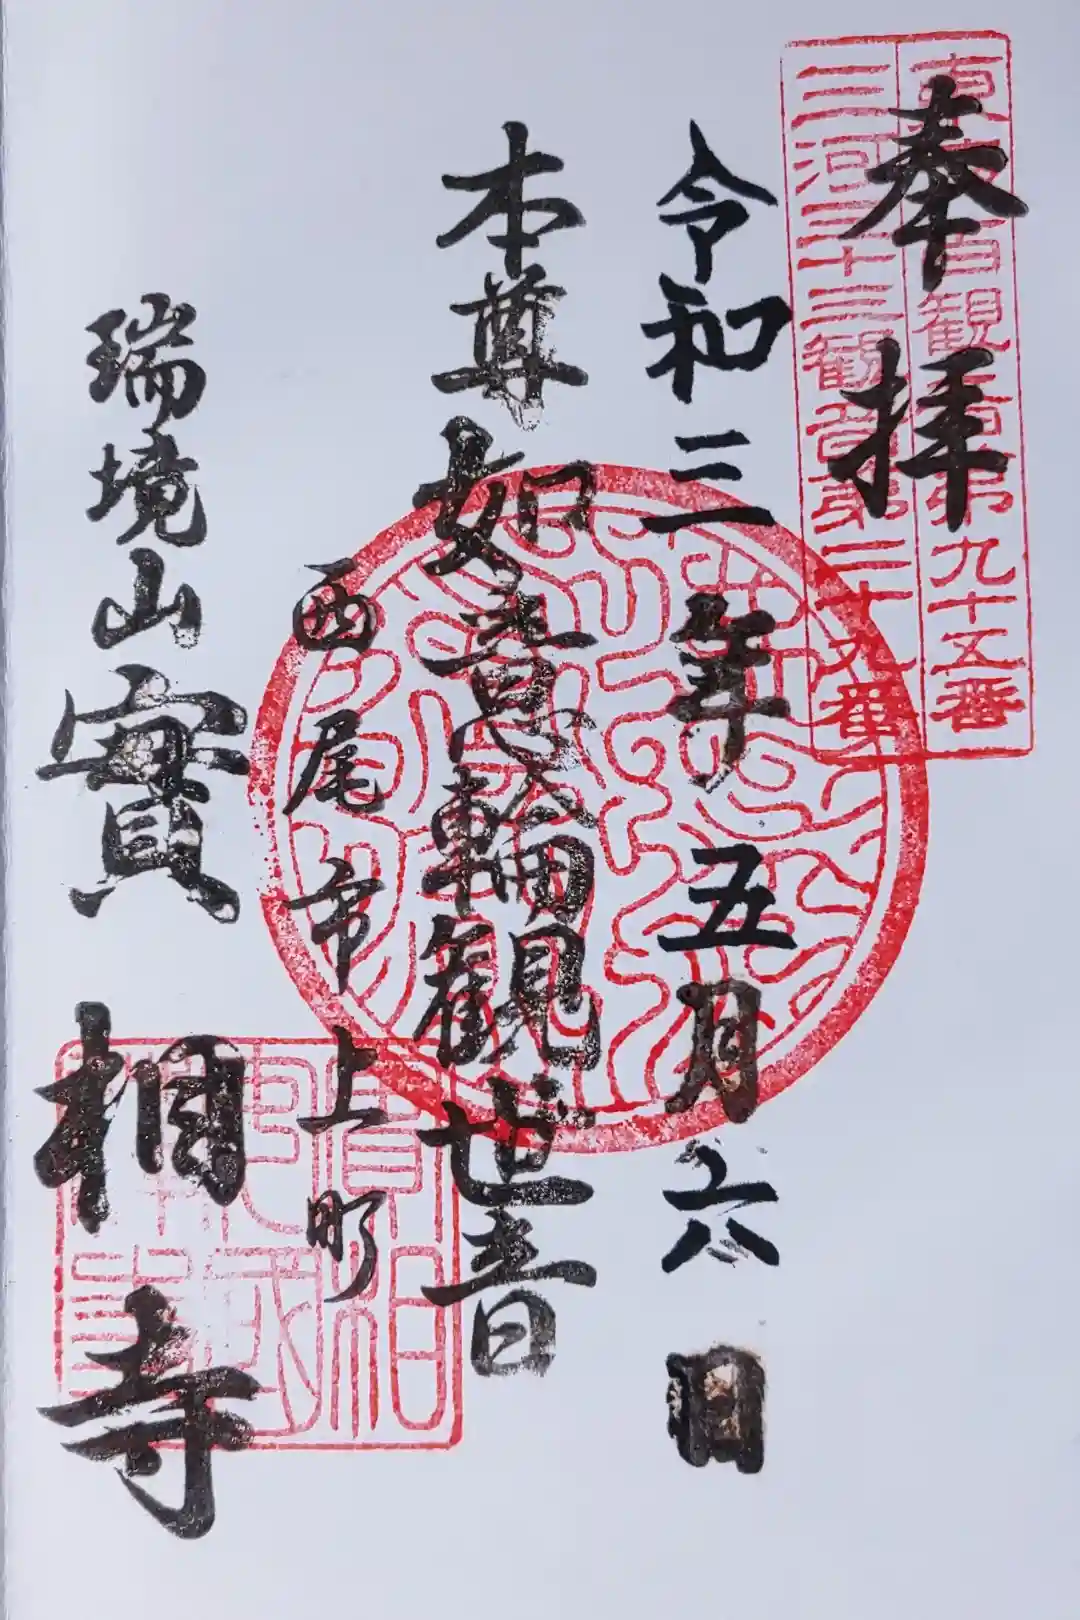 奉拝
百観音第九十五番
三河三十三観音第二十九番
令和三年五月六日
本尊如意輪観世音
西尾市上町
瑞境山實相寺